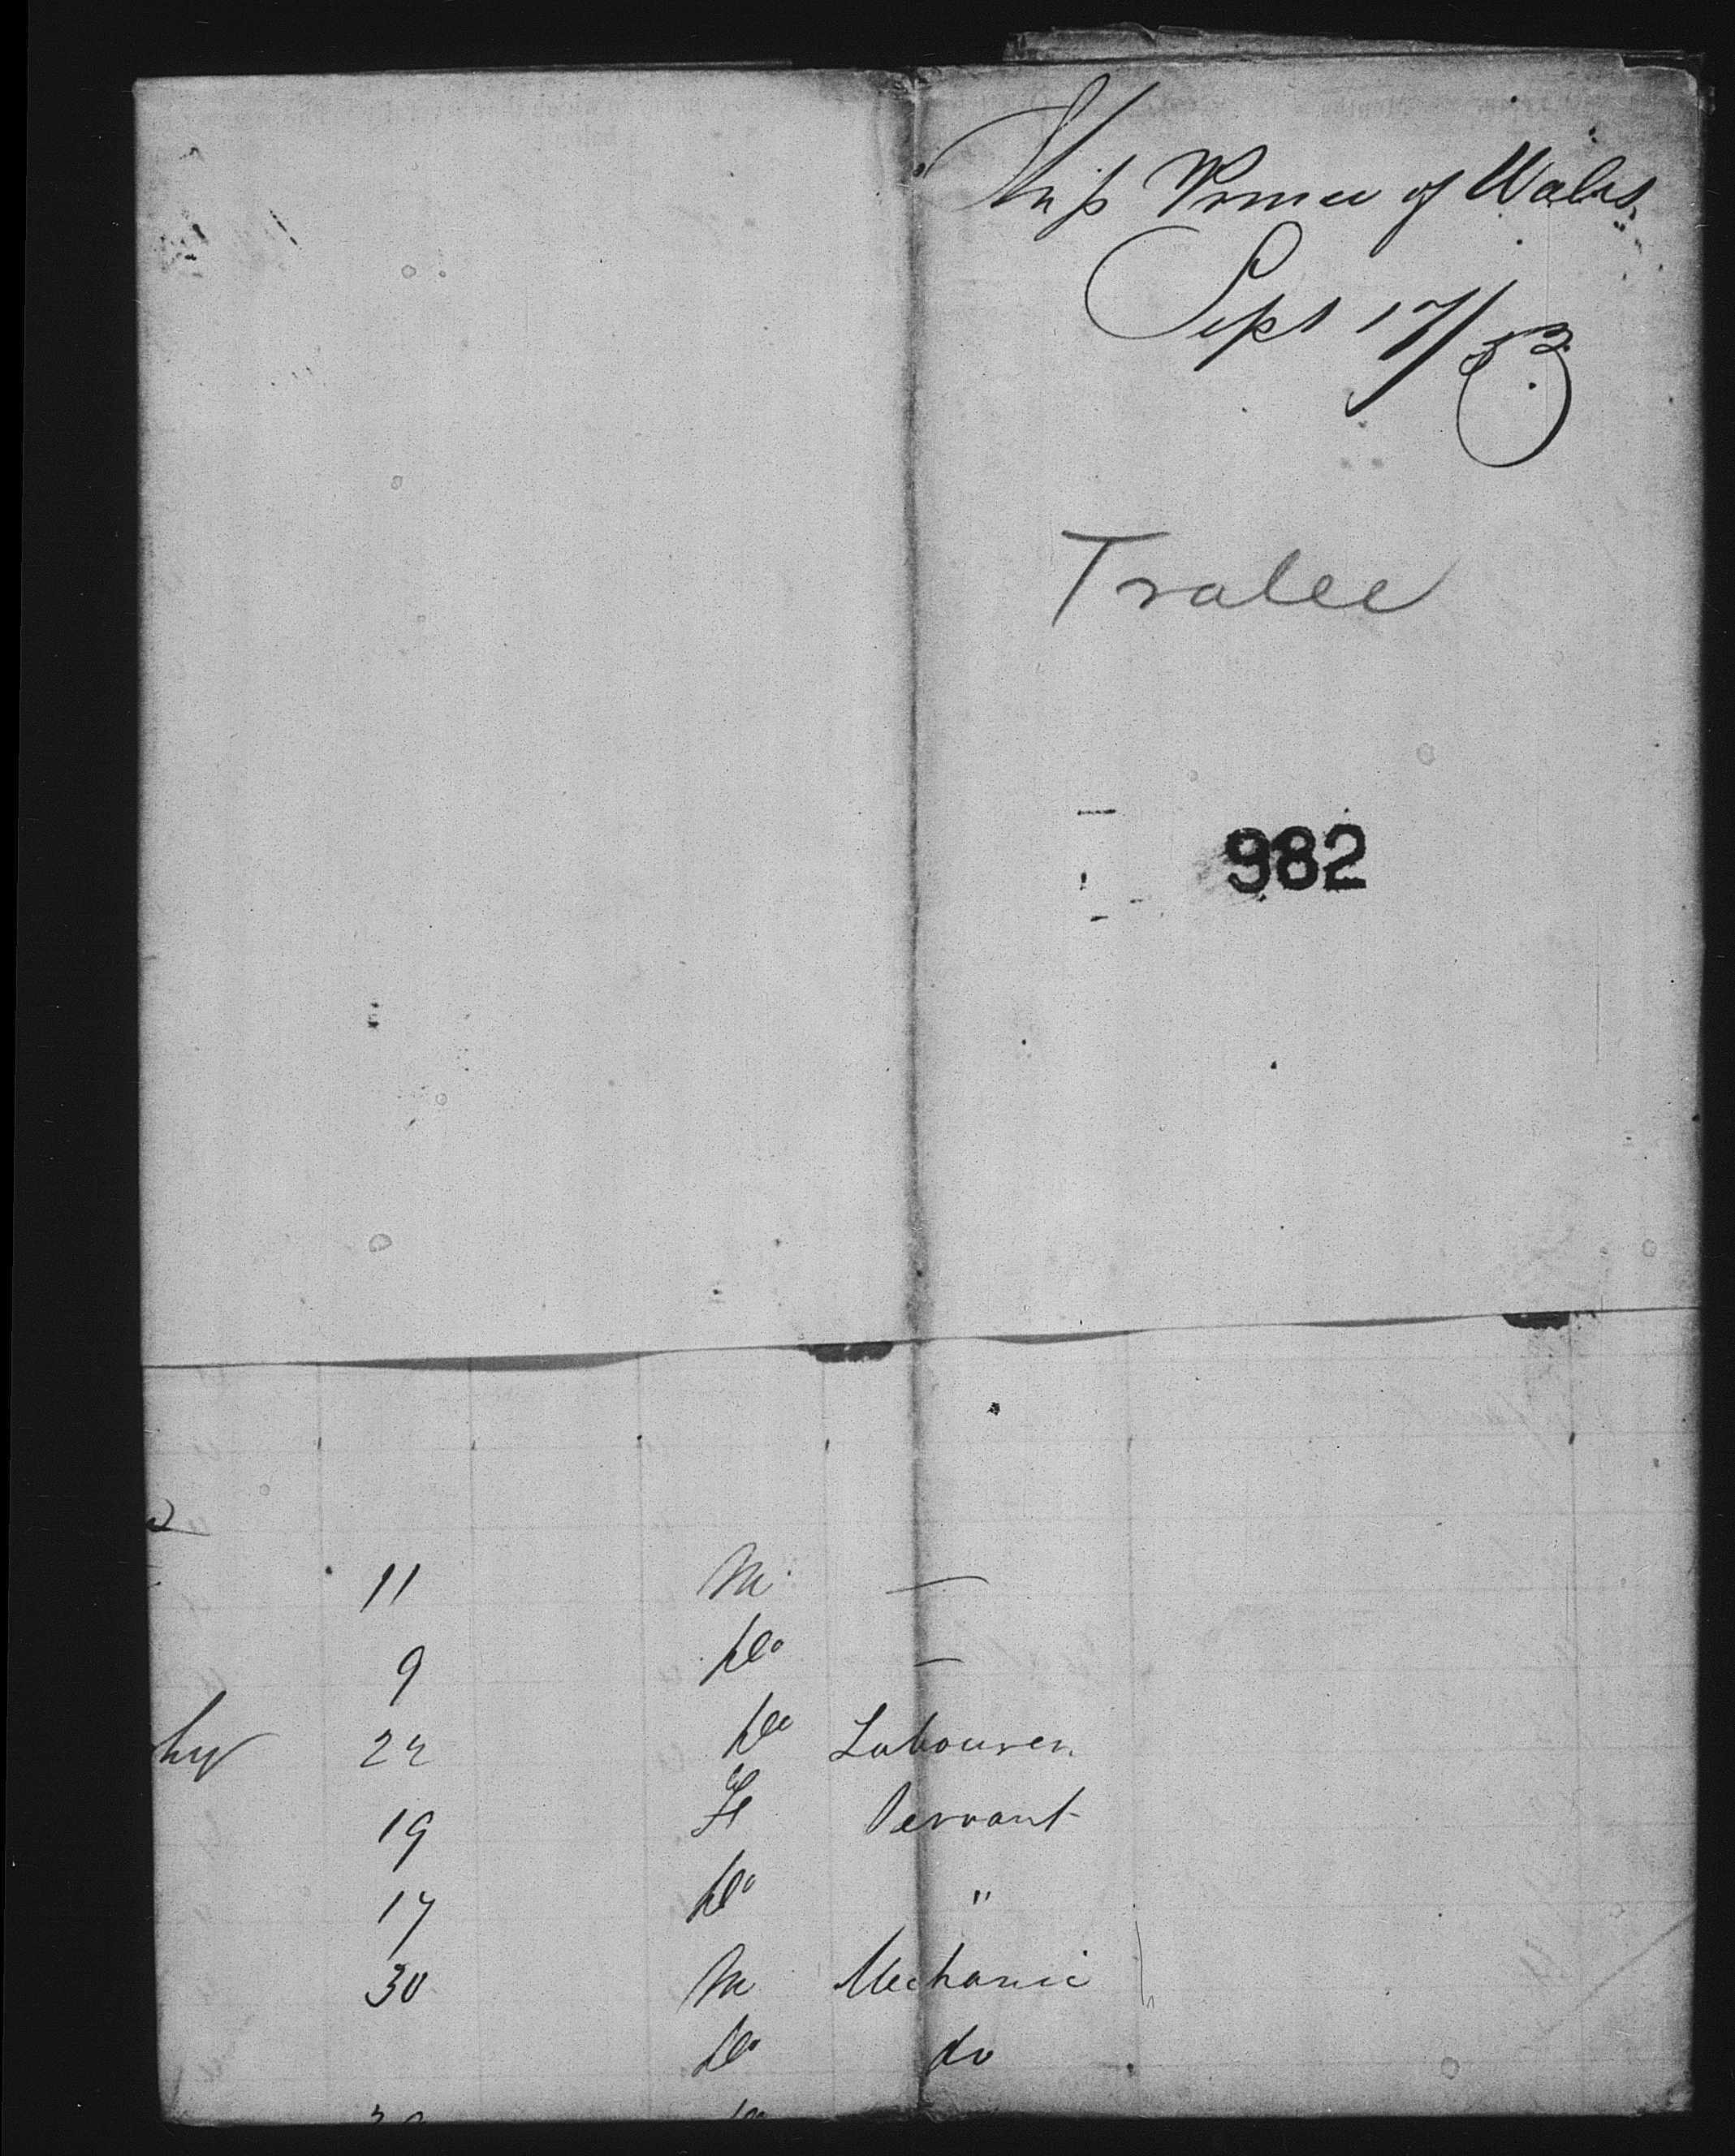 Ship Prince of Wales
Sept 17/53
Tralee
982
11 M —
9 Do —
hy 22 Do Labourer
19 F Servant
17 Do "
30 M Mechanic
Do do